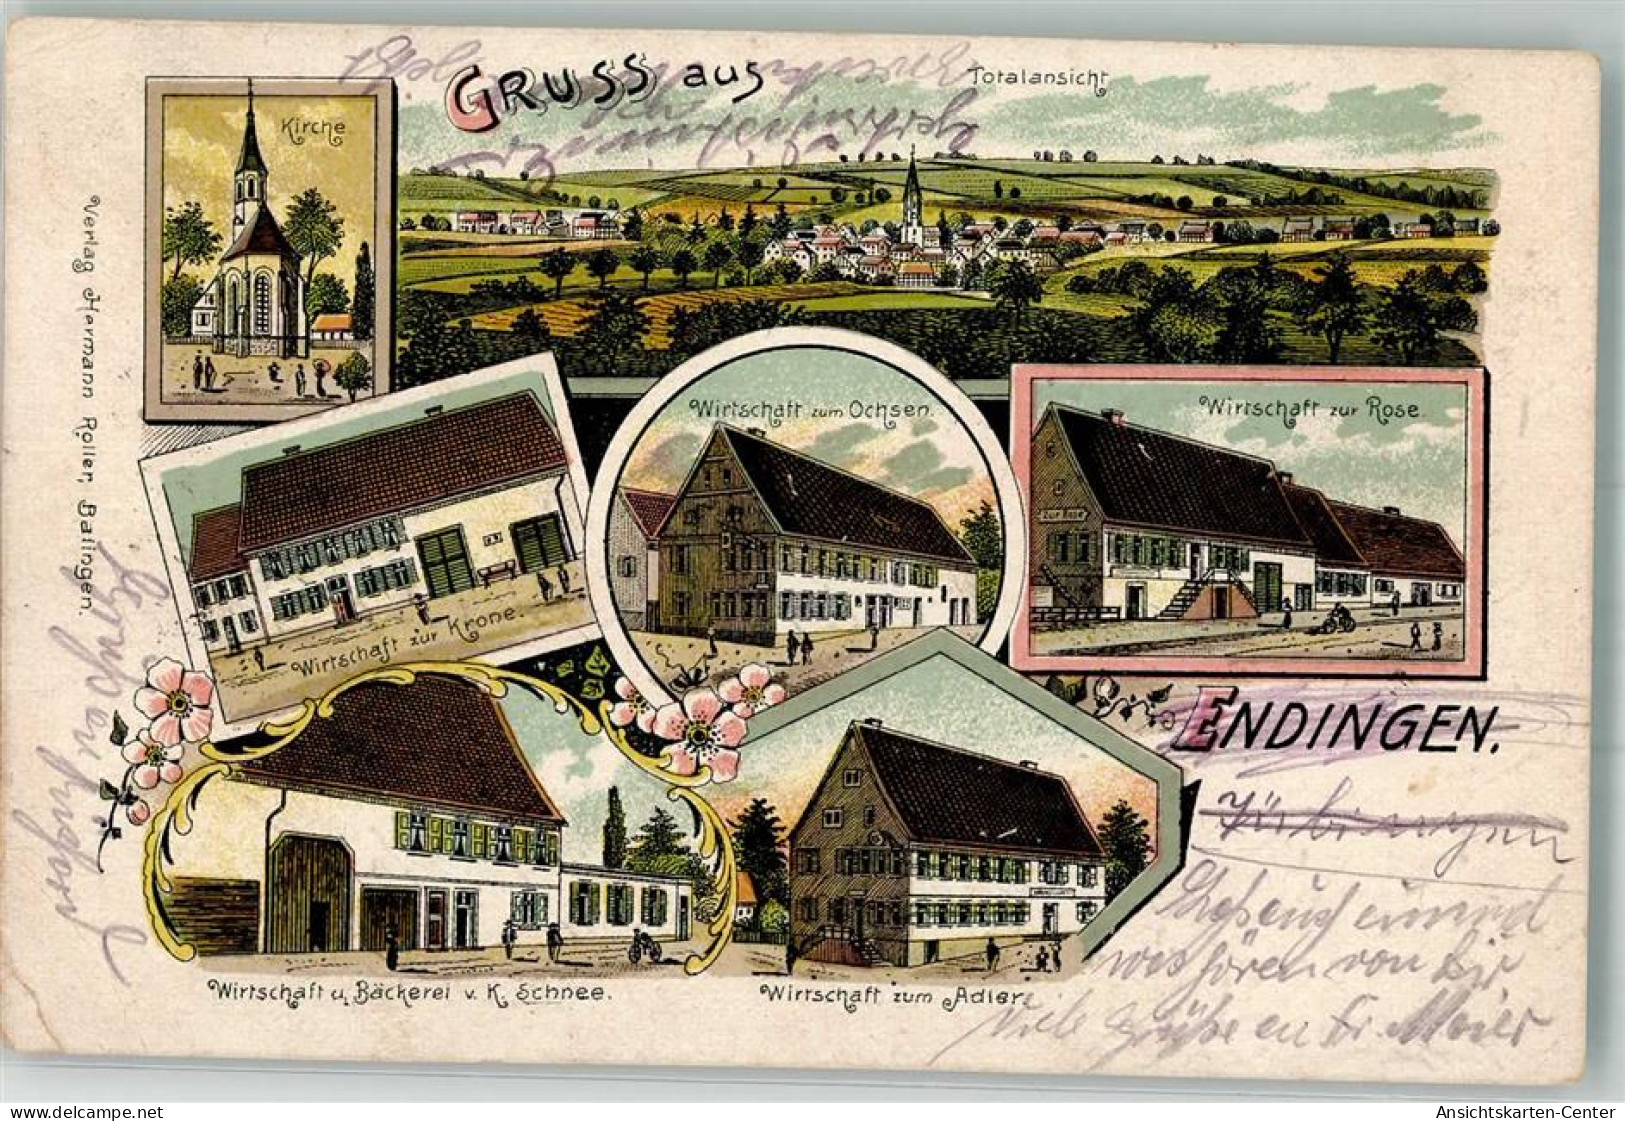 GRUSS aus
Totalansicht
Kirche
Verlag Hermann Roller, Balingen.
Wirtschaft zum Ochsen.
Wirtschaft zur Rose.
Zur Rose
Wirtschaft zur Krone.
ENDINGEN.
Wirtschaft u. Bäckerei v. K. Schnee.
Wirtschaft zum Adler.
was hören von Dir
Viele Grüße an Fr. Maier
www.delcampe.net
Ansichtskarten-Center